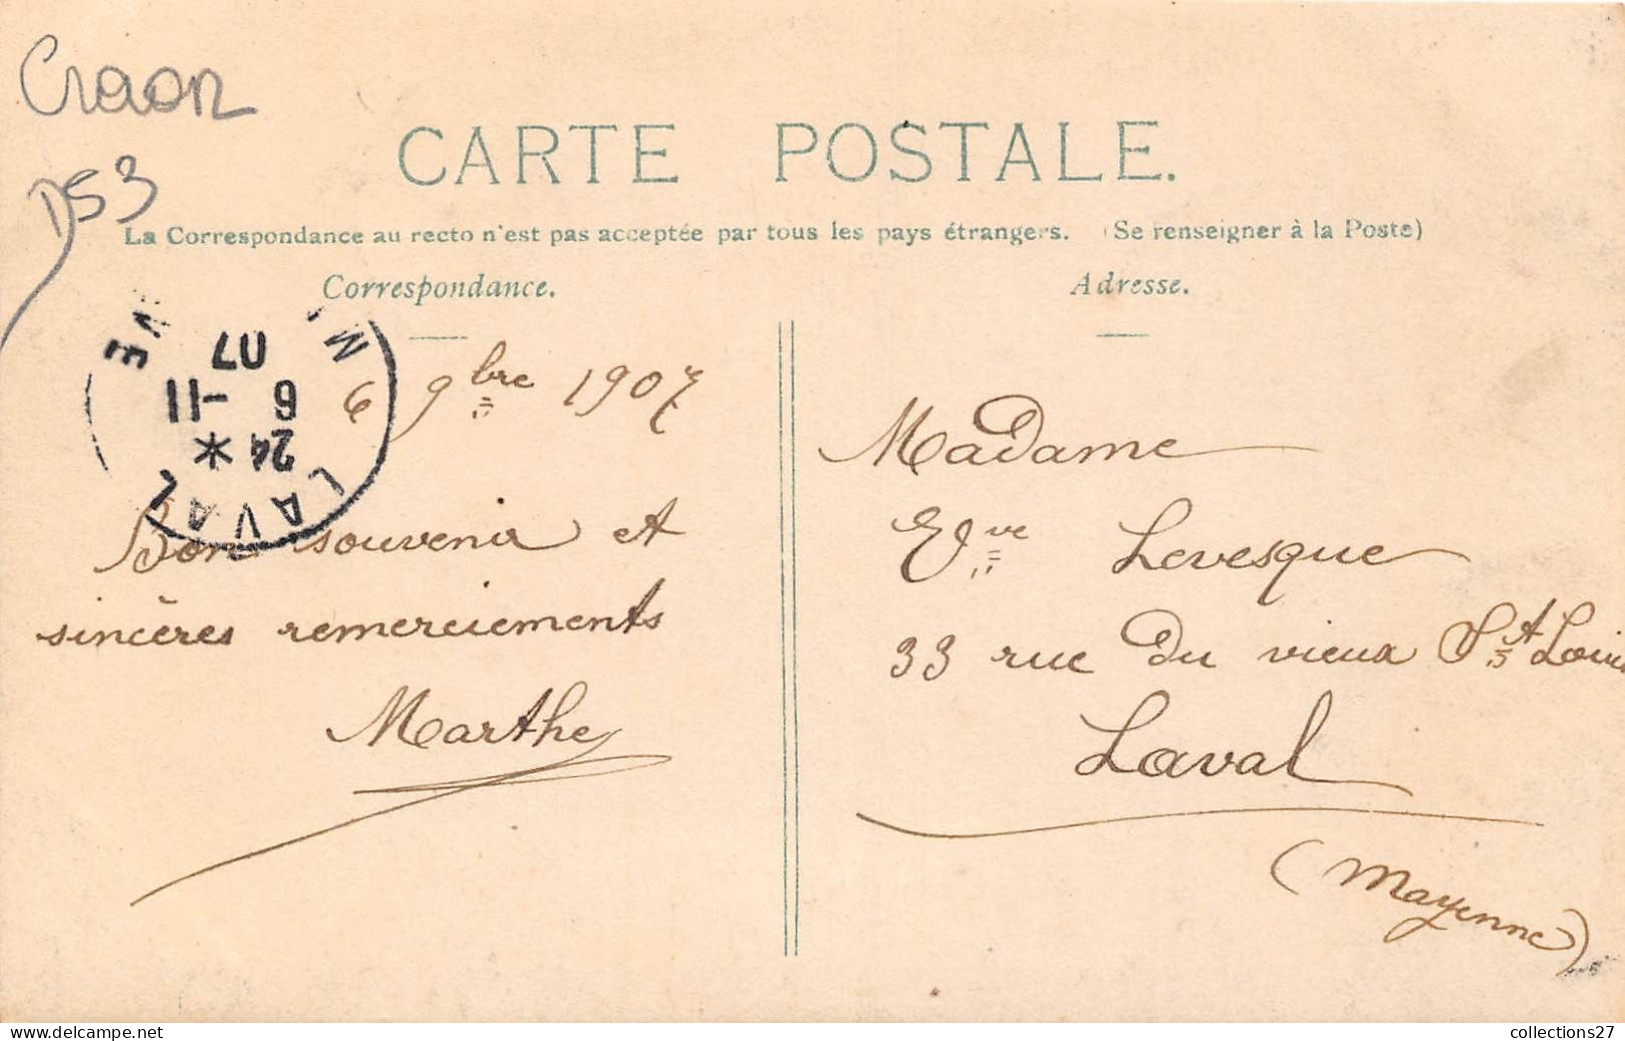 Craon
D53
CARTE POSTALE.
La Correspondance au recto n'est pas acceptée par tous les pays étrangers. (Se renseigner à la Poste)
Correspondance.
6 9bre 1907
Bon souvenir et
sincères remerciements
Marthe
LAVAL
24 *
6 -11
07
Adresse.
Madame
Vve Levesque
33 rue du vieux St Louis
Laval
(Mayenne)
collections27